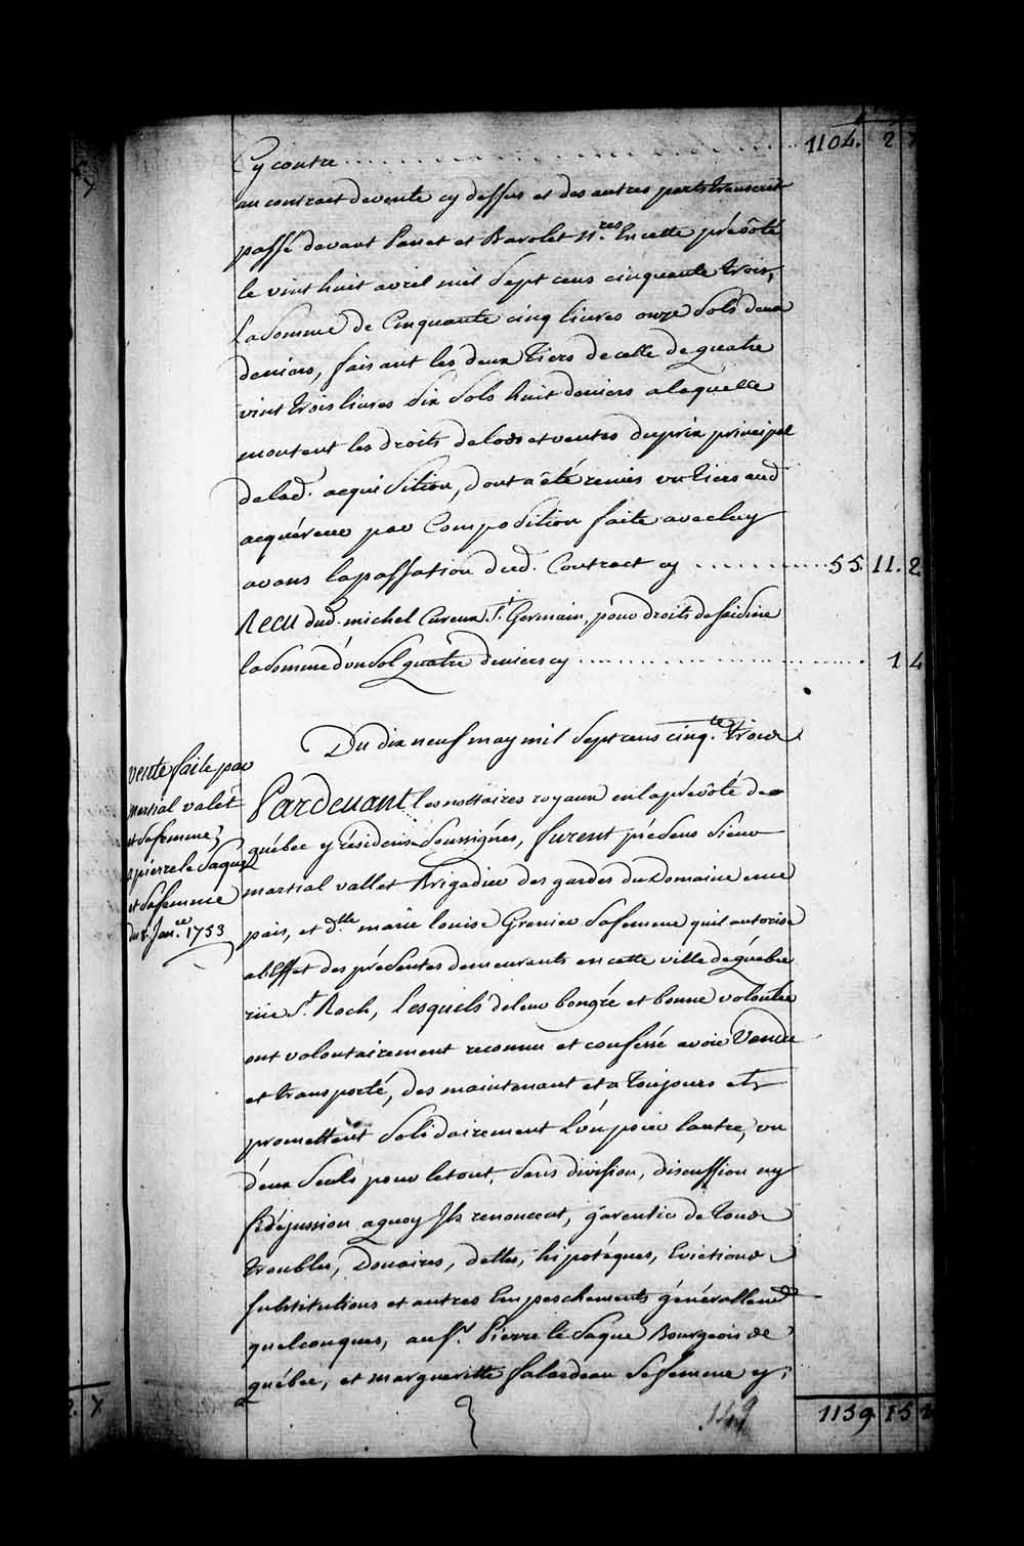 Cy contre .................... 1104. 2
au contract de vente cy dessus et des autres parts transcrit
passé devant Panet et Barolet N.res en cette prévôté
le vint huit avril mil sept cens cinquante trois,
la somme de Cinquante cinq livres onze sols deux
deniers, faisant les deux tiers de celle de quatre
vint trois livres six sols huit deniers a laquelle
montent les droits de lods et ventes du prix principal
de lad. acquisition, dont a été remis un tiers aud
acquéreur par Composition faite avec luy
avans la passation dud. Contract cy .......... 55. 11. 2
Recu dud. michel Cureux St. Germain, pour droits de saisine
la somme d'un sol quatre deniers cy .................... 1 4
Du dix neuf may mil sept cens cinq.te trois
vente faite par
martial valet
et sa femme,
a pierre le Saque
et sa femme
du 8. Jan.re 1753
Pardevant les nottaires royaux en la prévôté de
québec y résidens soussignés, furent présens sieur
martial vallet Brigadier des gardes du Domaine en ce
païs, et d.lle marie louise Grenier sa femme quil autorise
a l'Effet des présentes demeurants en cette ville de québec
rüe St. Roch, Lesquels de leur bon gré et bonne volontée
ont volontairement reconnu et confessé avoir Vendu
et transporté, des maintenant et a toujours et
promettent solidairement L'un pour lautre, un
d'eux seuls pour le tout, sans division, discussion ny
fidéjussion a quoy Ils renoncent, garentir de tous
troubles, Douaires, dettes, hipotéques, Evictions
substitutions et autres Empeschements générallement
quelconques, au s.r Pierre le Saque Bourgeois de
québec, et margueritte falardeau sa femme cy
149
1159. 15